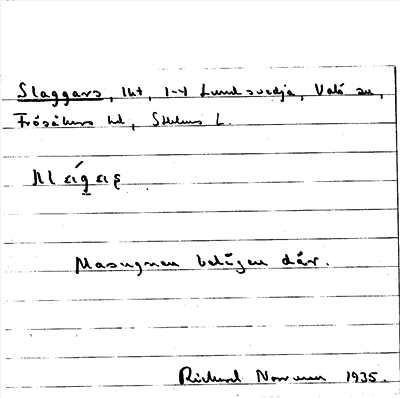 Slaggars, lht, 1-4 Lundsvedja, Valö sn,
Frösåkers hd, Sthlms l.
Masugnen belägen där.
Richard Norrman 1935.